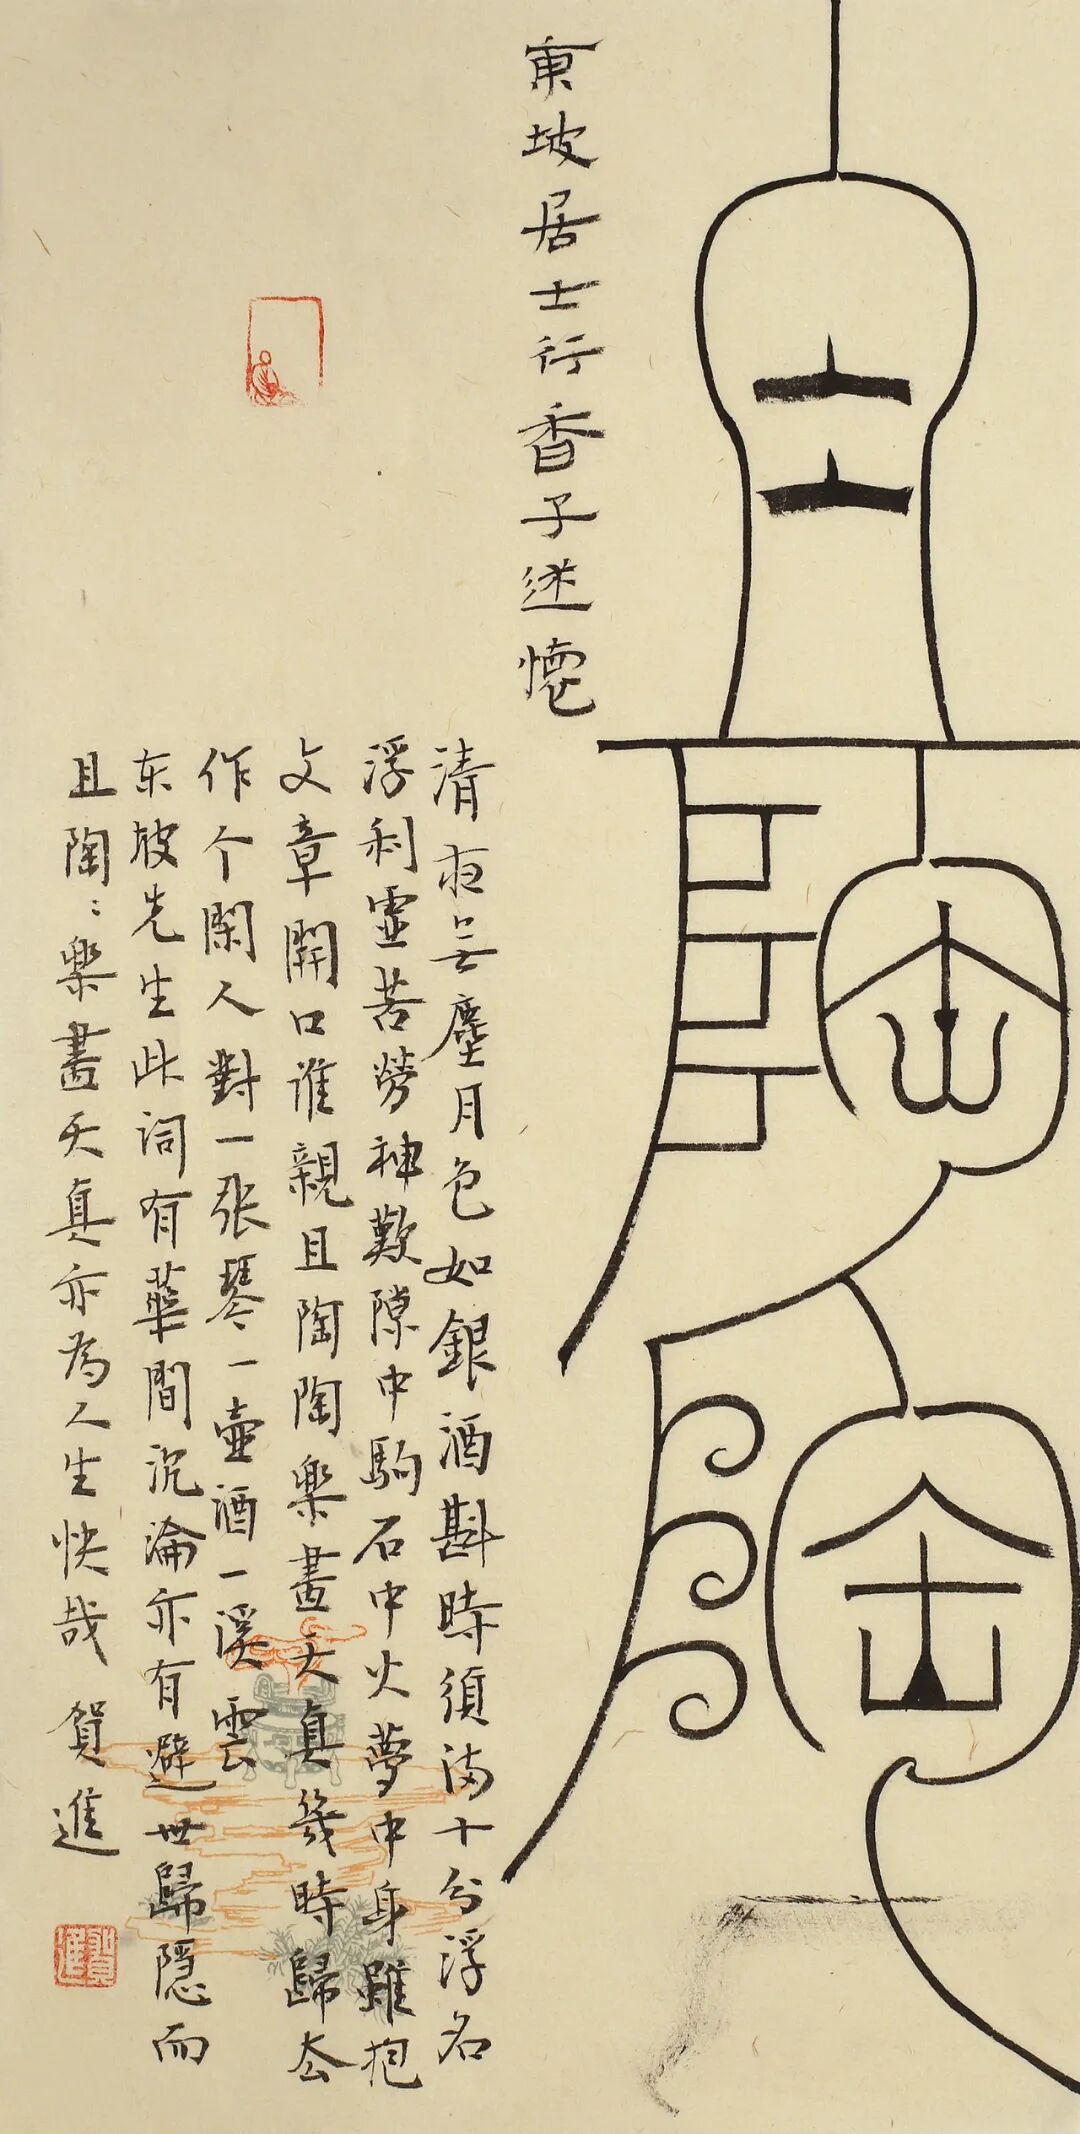 且陶陶
東坡居士行香子述懷
清夜無塵月色如銀酒斟時須滿十分浮名
浮利虛苦勞神歎隙中駒石中火夢中身雖抱
文章開口誰親且陶陶樂盡天真幾時歸去
作个閑人對一張琴一壺酒一溪雲
东坡先生此词有華間沉淪亦有避世歸隱而
且陶〻樂盡天真亦為人生快哉 賀進
賀進